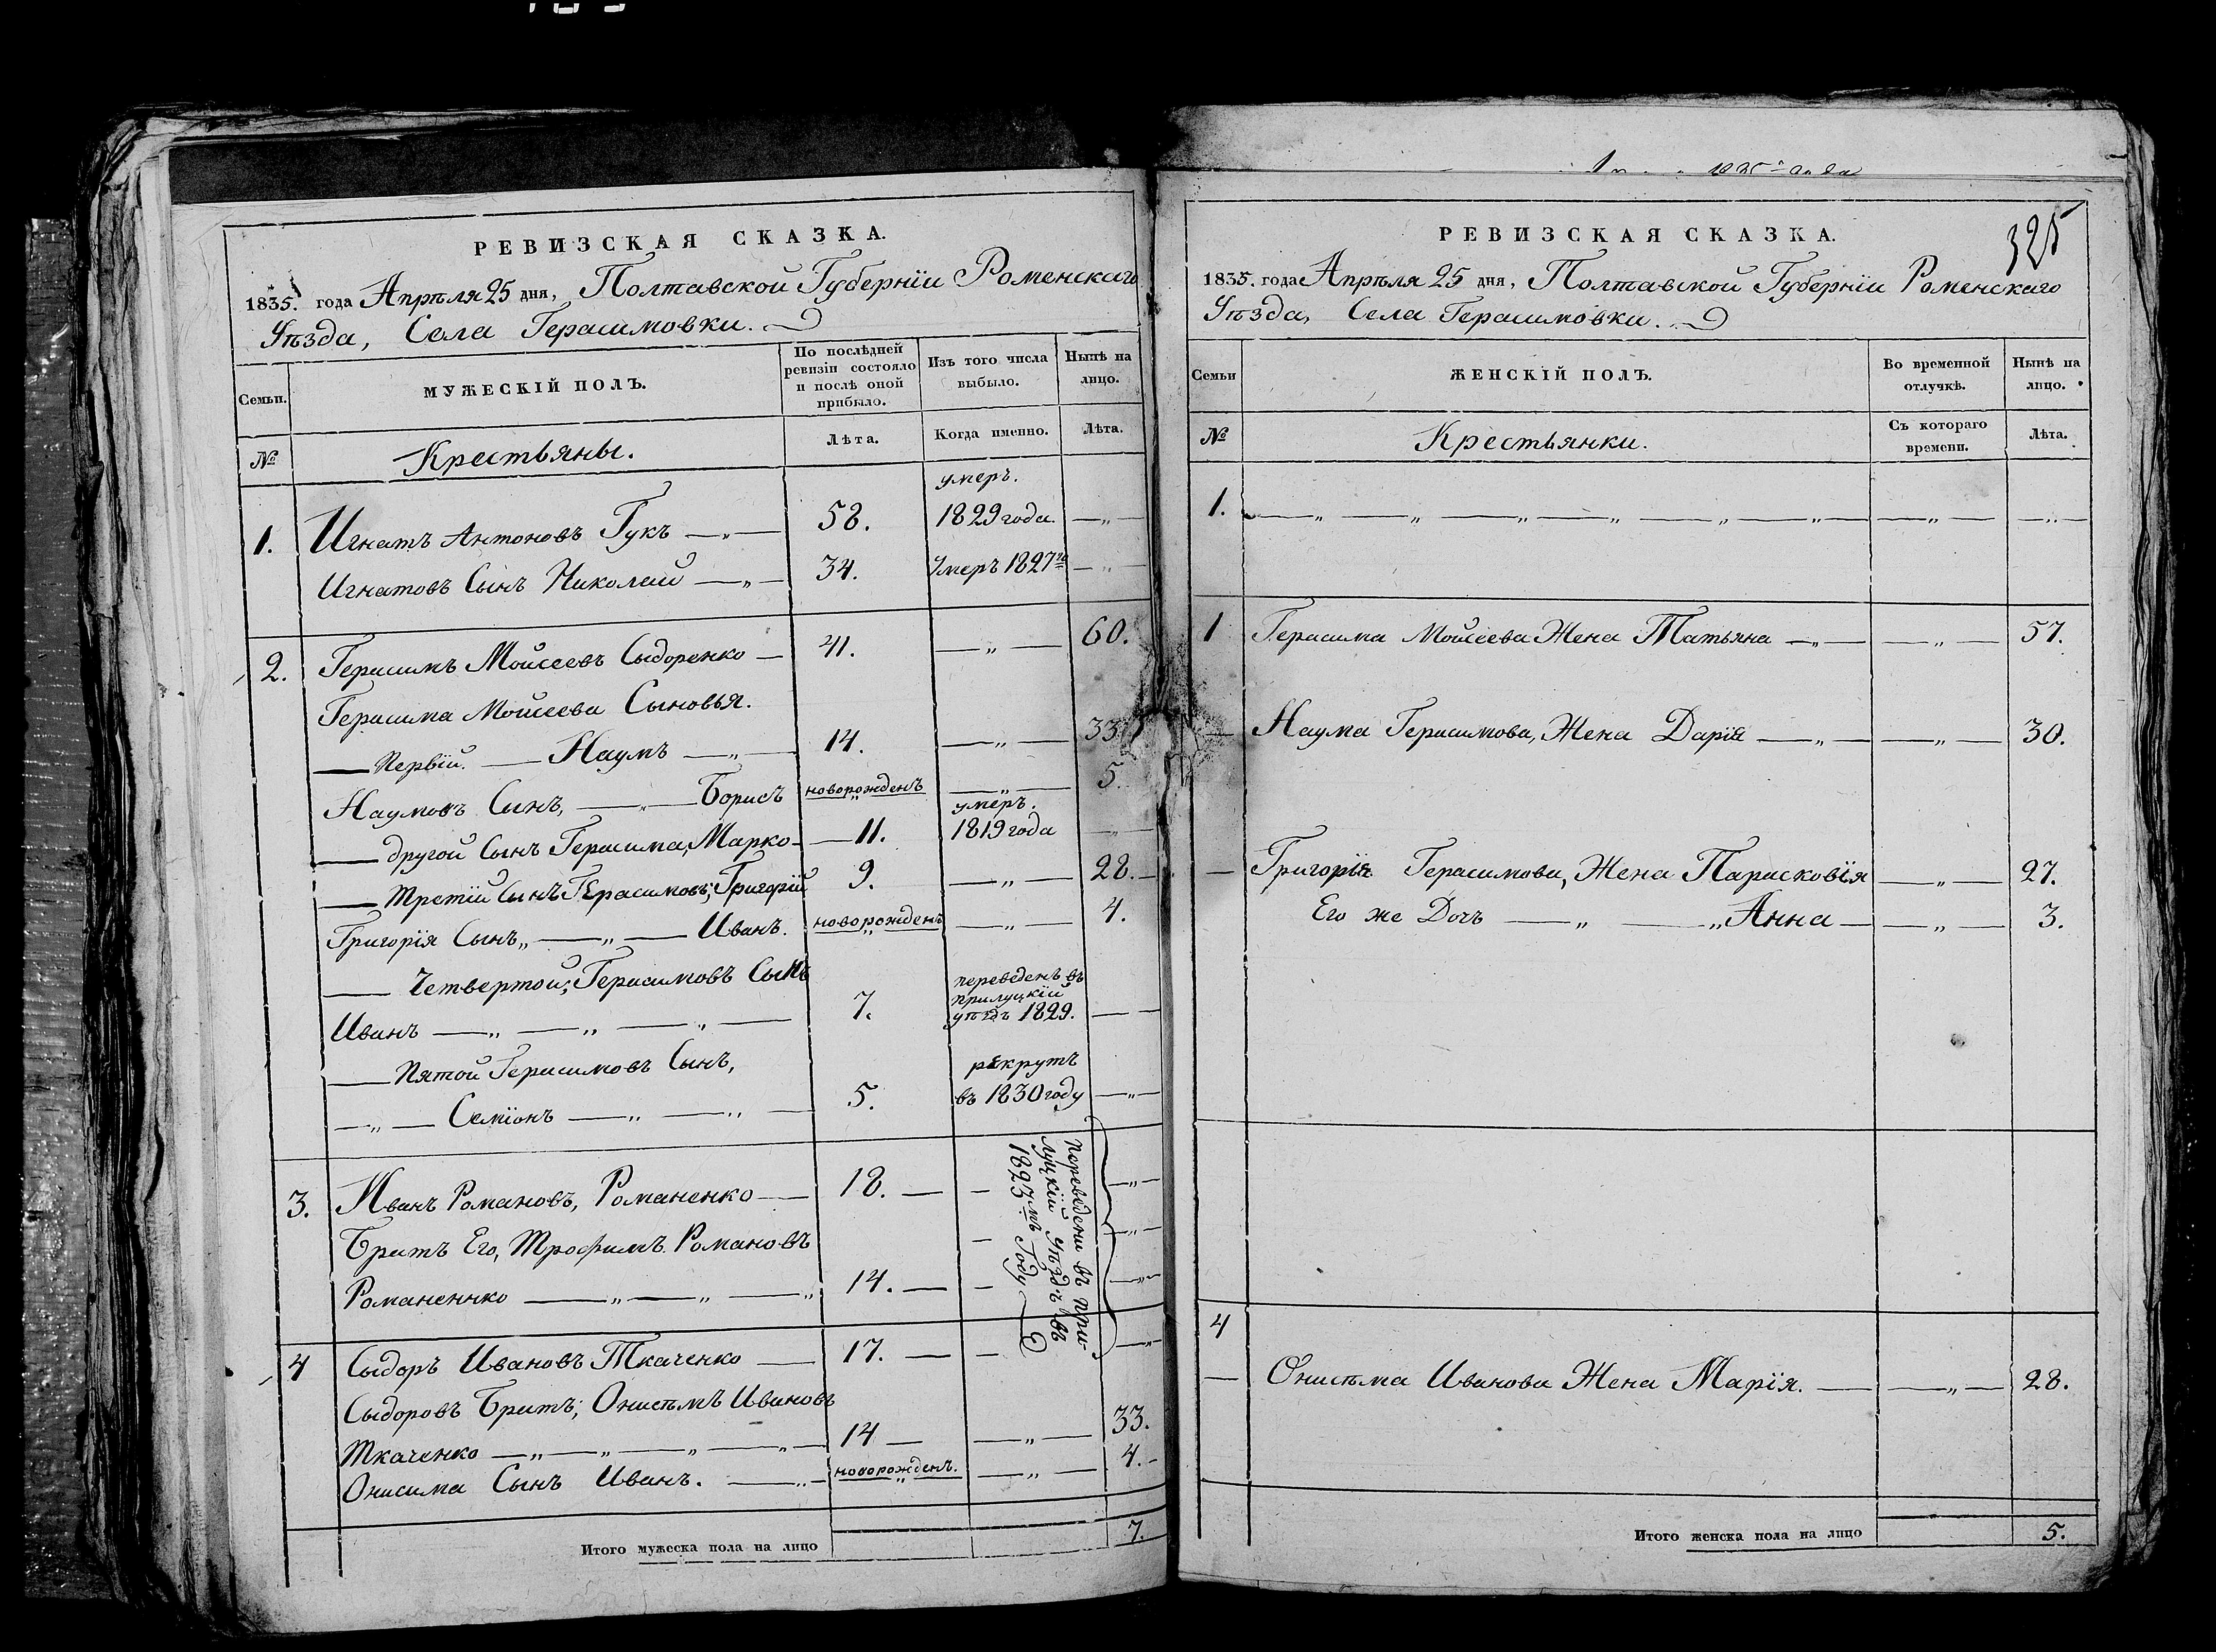 РЕВИЗСКАЯ СКАЗКА.
1835. года Апрѣля 25 дня, Полтавской Губернїи Роменскаго
Уѣзда, Села Герасимовки.
Семьи.
МУЖЕСКІЙ ПОЛЪ.
По послѣдней ревизіи состояло и послѣ оной прибыло.
Изъ того числа выбыло.
Нынѣ на лицо.
№
Крестьяны.
Лѣта.
Когда именно.
Лѣта.
умеръ.
1. Игнатъ Антоновъ Гукъ — „ — 58. 1829 года. — „ —
Игнатовъ Сынъ Николай — „ — 34. Умеръ 1827го — „ —
2. Герасимъ Мойсеевъ Сыдоренко — 41. — „ — 60.
Герасима Мойсеева Сыновья.
— Первїй. — Наумъ — „ — 14. — „ — 33
Наумовъ Сынъ, — „ — Борисъ новорожденъ — „ — 5.
умеръ.
— другой Сынъ Герасима, Марко — 11. 1819 года — „ —
— Третїй Сынъ Герасимовъ; Григорїй 9. — „ — 28. —
Григорїя Сынъ „ — „ — Иванъ. новорожденъ — „ — 4.
— Четвертой; Герасимовъ Сынъ переведенъ въ
Прилуцкїй
Иванъ — „ — „ — „ — 7. уѣздъ 1829. — —
— Пятой Герасимовъ Сынъ, рекрутъ
— „ — Семїонъ — „ — „ — 5. въ 1830 году — „ —
3. Иванъ Романовъ, Романенко — 18. — — — „ —
Братъ Его, Трофимъ Романовъ — — „ —
Романеннко — „ — „ — „ 14. — — — „ —
Переведени въ При-
луцкїй уѣздъ въ
1823мъ Году
4 Сыдоръ Ивановъ Ткаченко — 17. — — — „
Сыдоровъ Братъ; Онисѣмъ Ивановъ
Ткаченко — „ — „ — „ — „ — 14 — — „ — 33.
Онисима Сынъ Иванъ. — „ — новорожденъ. — „ — 4. —
Итого мужеска пола на лицо 7.
325
РЕВИЗСКАЯ СКАЗКА.
1835. года Апрѣля 25 дня, Полтавской Губернїи Роменскаго
Уѣзда, Села Герасимовки.
Семьи
ЖЕНСКІЙ ПОЛЪ.
Во временной отлучкѣ.
Нынѣ на лицо.
№
Крестьянки.
Съ котораго времени.
Лѣта.
1. — „ — „ — „ — „ — „ — „ — — „ — — „ —
1 Герасима Мойсеева Жена Татьяна — „ — — „ — 57.
— Наума Герасимова, Жена Дарїя — „ — — „ — 30.
— Григорїя Герасимова, Жена Парасковїя — „ — 27.
Его же Дочъ — „ — „ Анна — — „ — 3.
4
— Онисѣма Иванова Жена Марїя. — — „ — 28.
Итого женска пола на лицо 5.